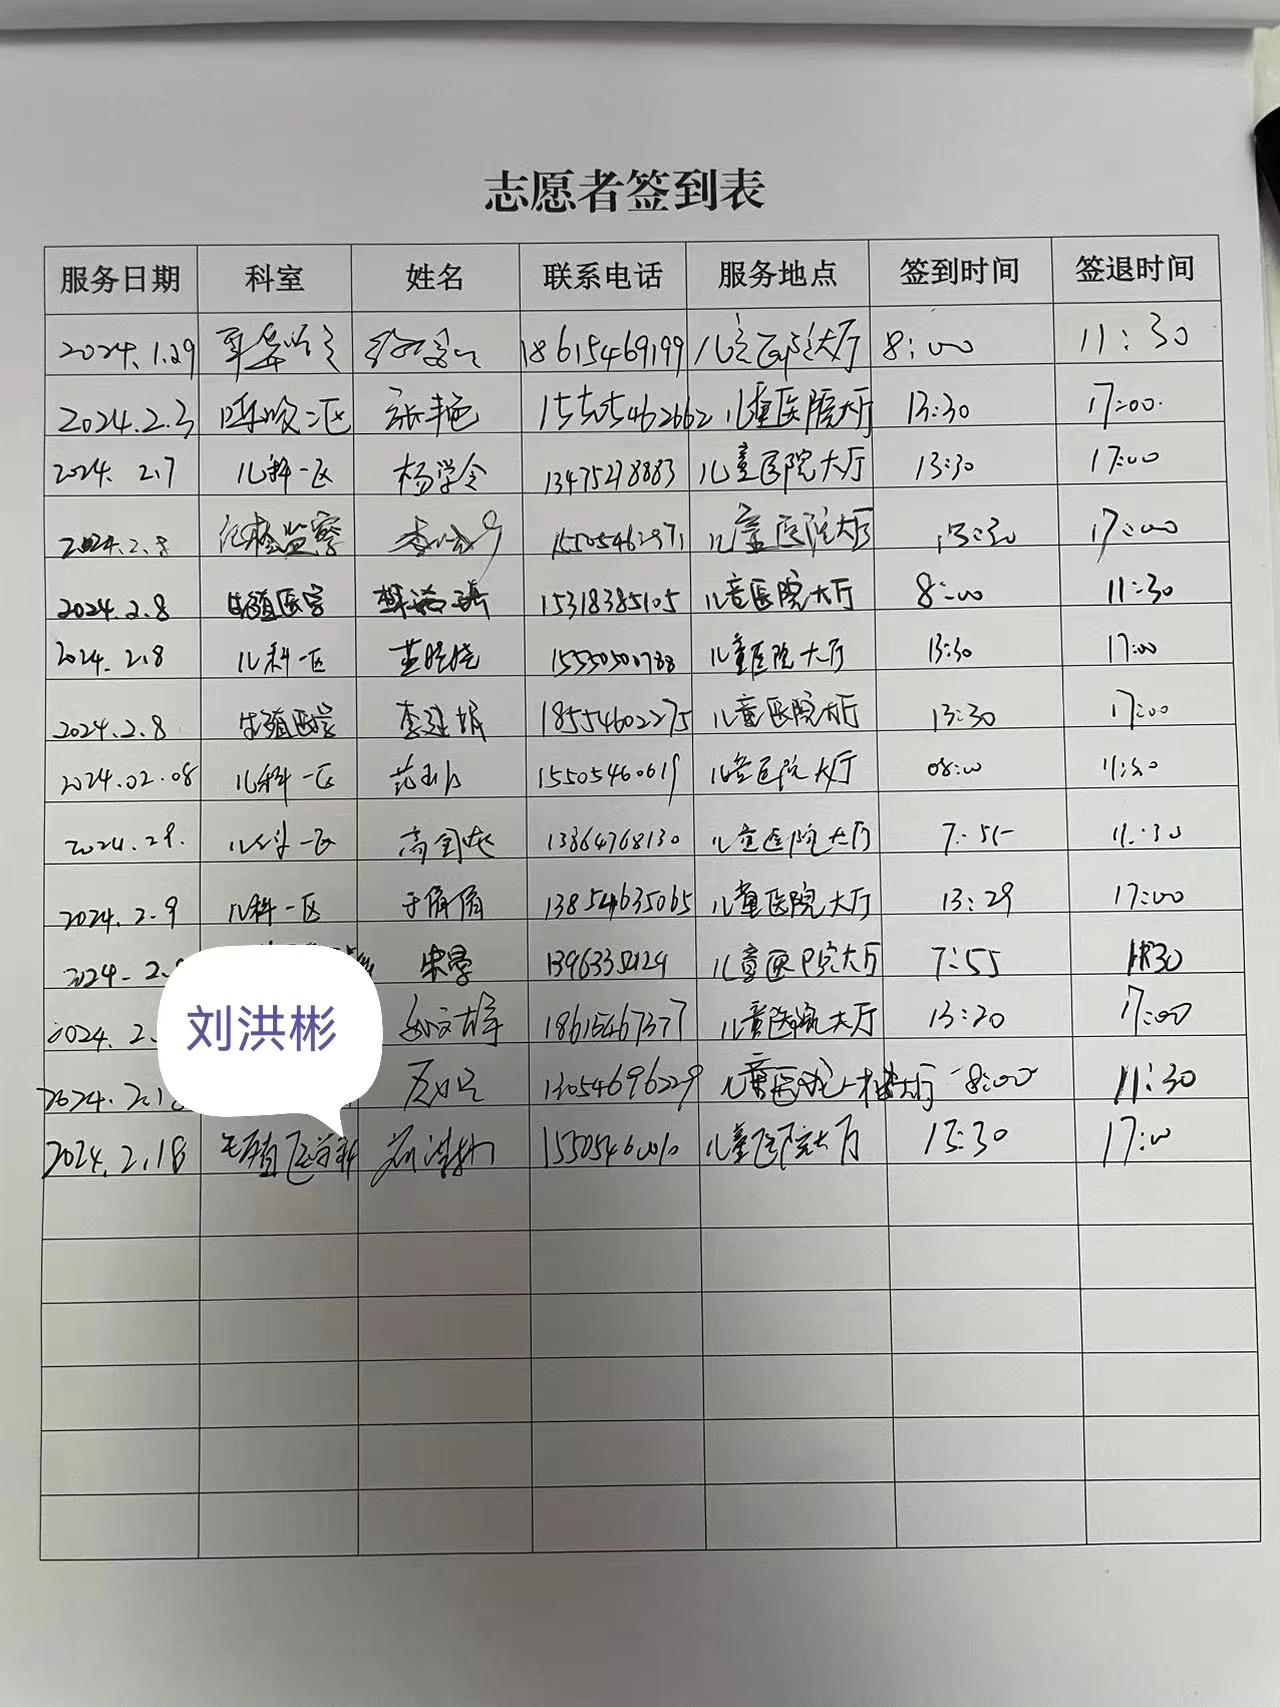 志愿者签到表
服务日期 科室 姓名 联系电话 服务地点 签到时间 签退时间
2024.1.29 18615469199 儿童医院大厅 8:00 11:30
2024.2.3 呼吸二区 张艳 15505462662 儿童医院大厅 13:30 17:00
2024.2.7 儿科一区 杨学令 13475278883 儿童医院大厅 13:30 17:00
2024.2.8 纪检监察 15505462971 儿童医院大厅 13:30 17:00
2024.2.8 生殖医学 15318385105 儿童医院大厅 8:00 11:30
2024.2.8 儿科一区 15550500788 儿童医院大厅 13:30 17:00
2024.2.8 生殖医学 李建娟 18554602275 儿童医院大厅 13:30 17:00
2024.02.08 儿科一区 15505460619 儿童医院大厅 08:00 11:30
2024.2.9. 儿科一区 13864768130 儿童医院大厅 7:55 11:30
2024.2.9 儿科一区 于倩倩 13854635065 儿童医院大厅 13:29 17:00
2024.2. 儿童医院大厅 7:55 11:30
2024.2. 18615467377 儿童医院大厅 13:20 17:00
2024.2.18 13054696229 8:00 11:30
2024.2.18 生殖医学科 刘洪彬 15505460010 儿童医院大厅 13:30 17:00
刘洪彬